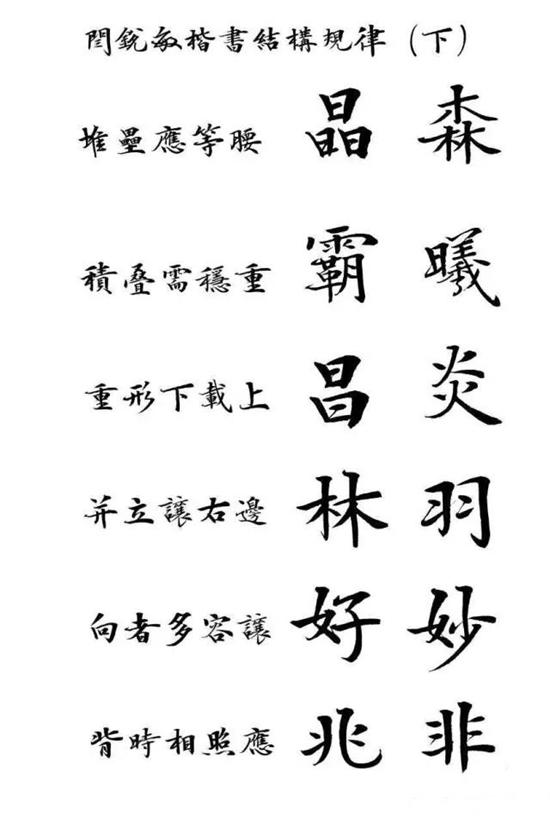 閆銳敏楷書結構規律（下）
堆壘應等腰 晶 森
積叠需穩重 霸 曦
重形下載上 昌 炎
并立讓右邊 林 羽
向者多容讓 好 妙
背時相照應 兆 非